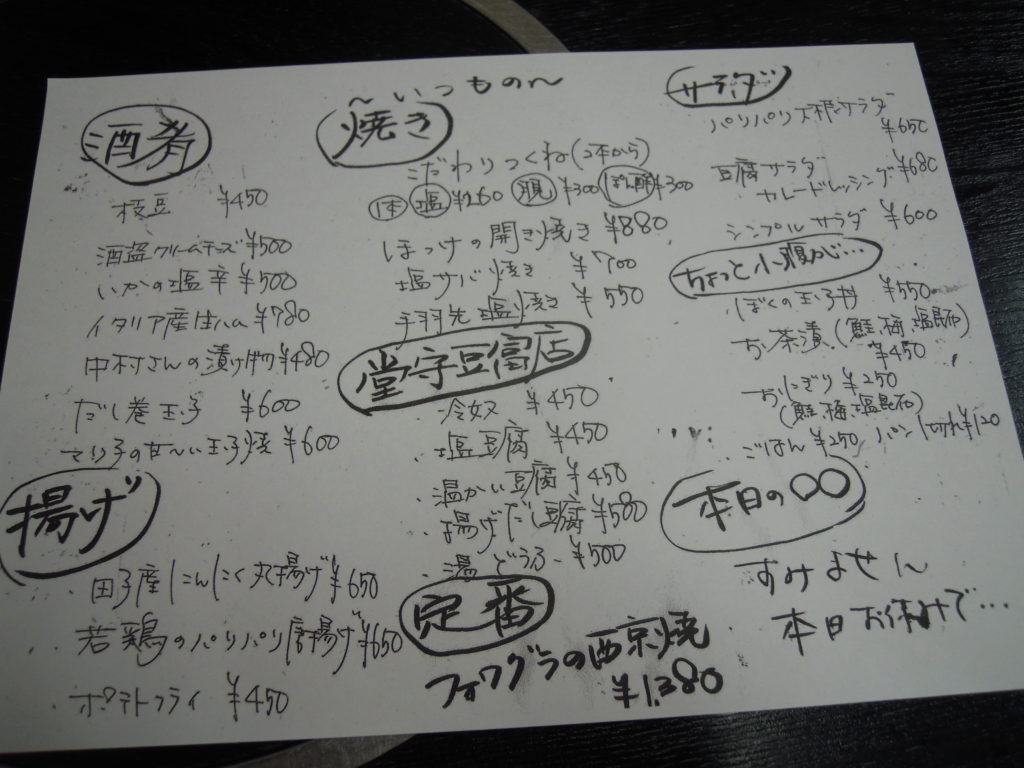 ～いつもの～
酒肴
枝豆 ¥450
酒盗クリームチーズ ¥500
いかの塩辛 ¥500
イタリア産生ハム ¥780
中村さんの漬け物 ¥480
だし巻玉子 ¥600
まり子の甘～い玉子焼 ¥600
揚げ
田子産にんにく丸揚げ ¥650
若鶏のパリパリ唐揚げ ¥650
ポテトフライ ¥450
焼き
こだわりつくね(2本から)
1本 塩 ¥260 ¥300 ¥300
ほっけの開き焼き ¥880
塩サバ焼き ¥700
手羽先塩焼き ¥550
堂守豆富店
冷奴 ¥450
塩豆腐 ¥450
温かい豆腐 ¥450
揚げだし豆腐 ¥580
湯どうふ ¥500
定番
フォワグラの西京焼
¥1.380
サラダ
パリパリ大根サラダ
¥650
豆腐サラダ
カレードレッシング ¥680
シンプルサラダ ¥600
ちょっと小腹が…
ぼくの玉子丼 ¥550
お茶漬(鮭 梅 塩昆布)
¥450
おにぎり ¥250
(鮭 梅 塩昆布)
ごはん ¥250 パン1切れ ¥120
本日の○○
すみません
本日お休みで…